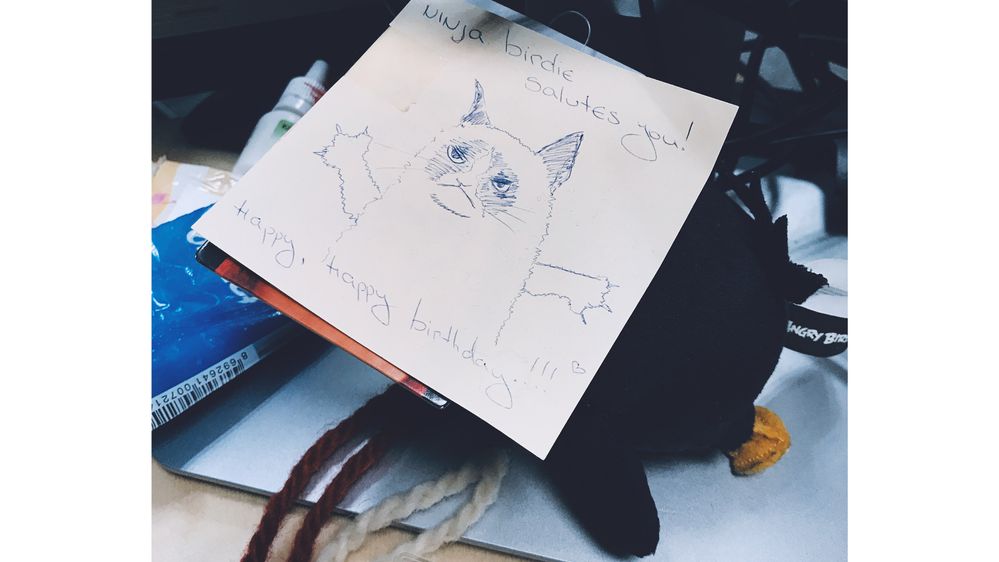 Ninja birdie
salutes you!
Happy, Happy birthday...!!!
ANGRY BIRDS
8692641 00721